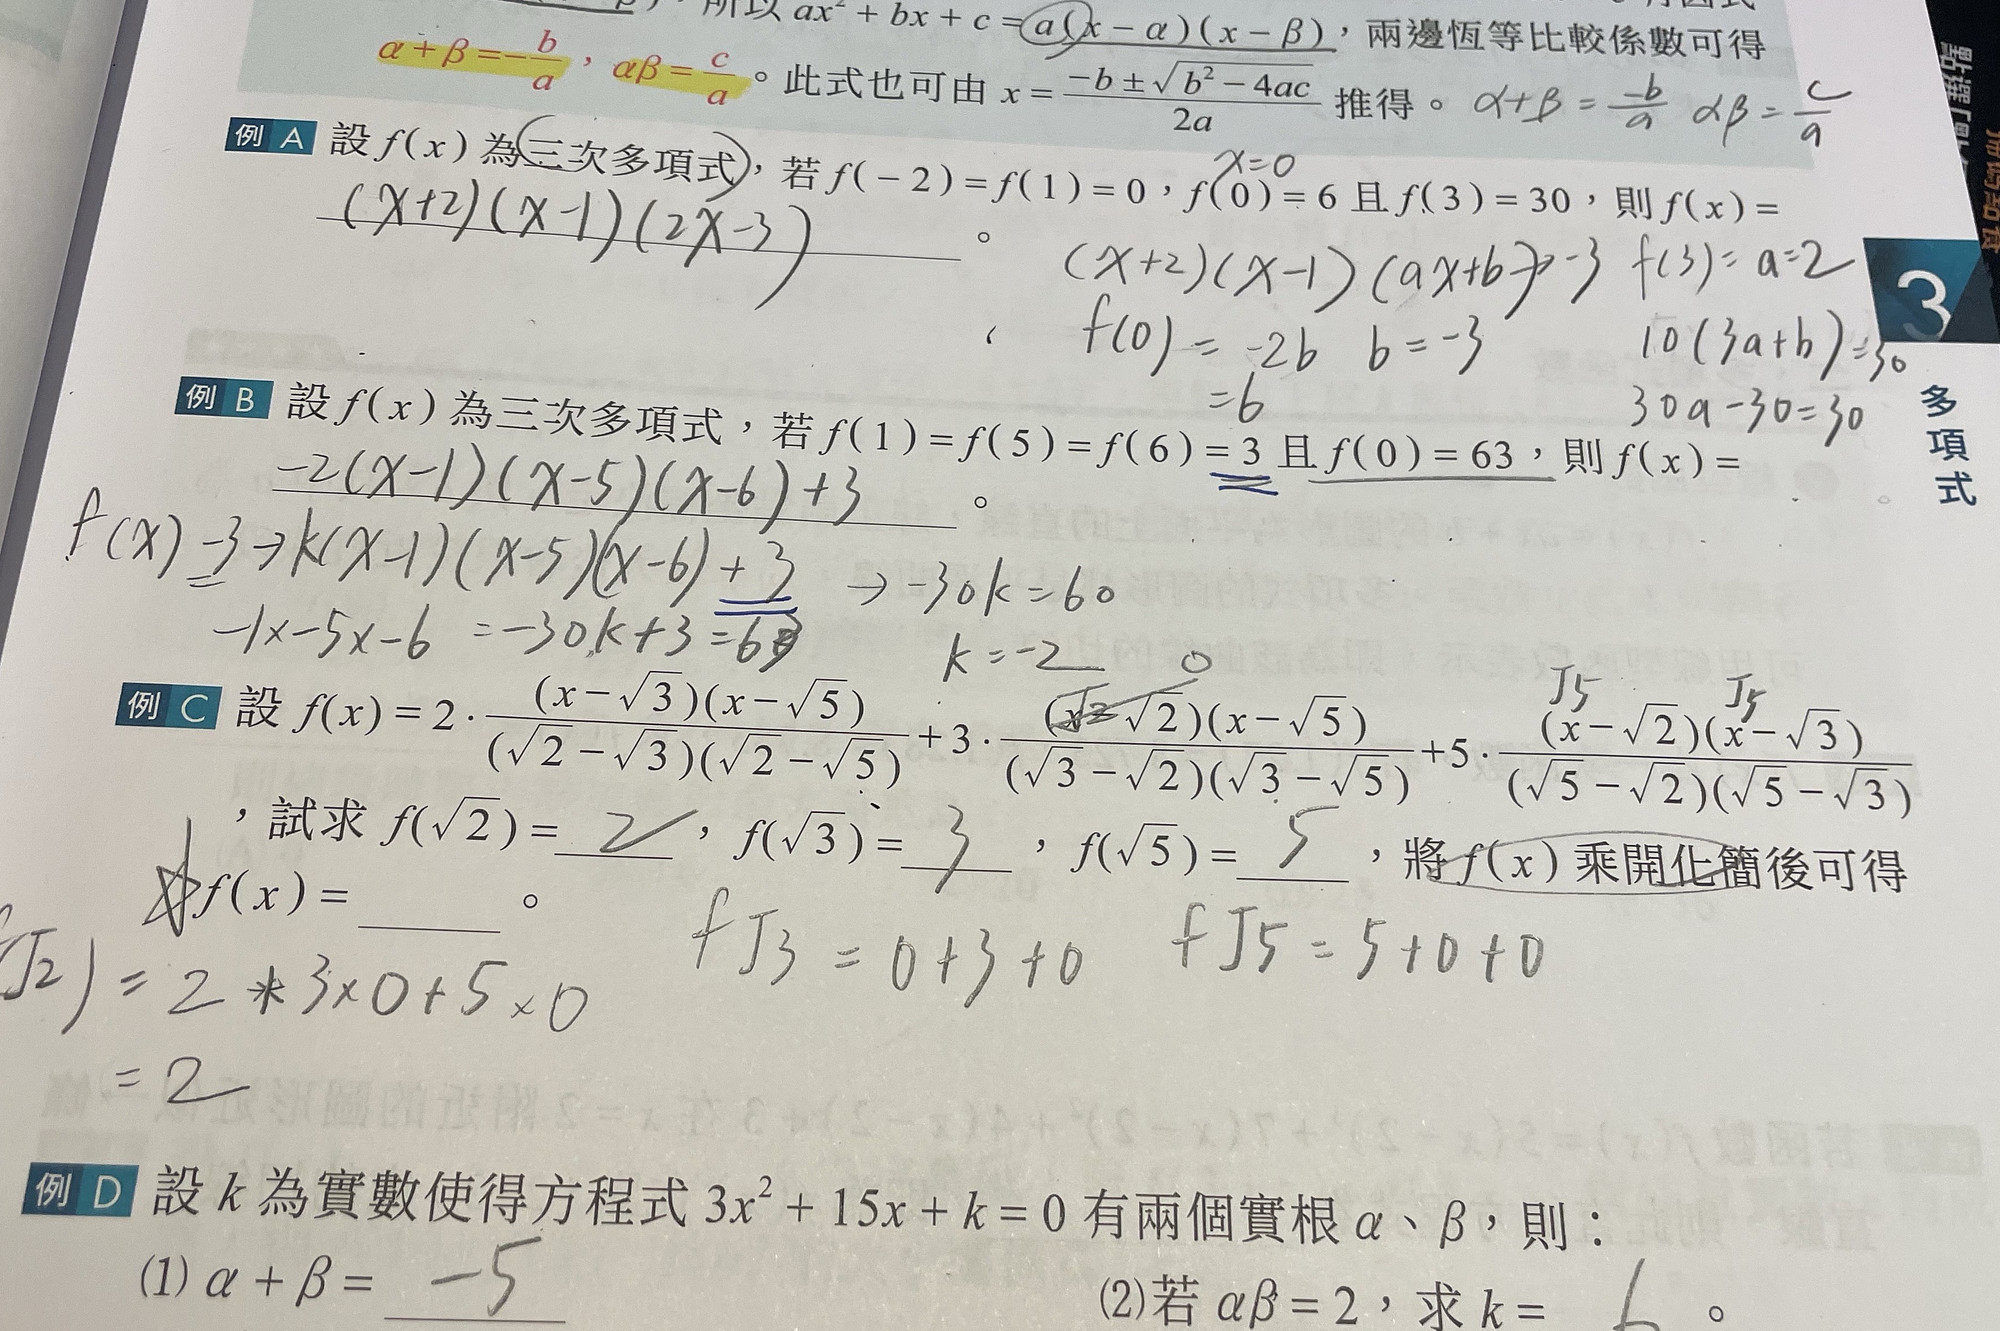 所以 ax² + bx + c = a(x − α)(x − β)，兩邊恆等比較係數可得
α + β = −b/a，αβ = c/a。此式也可由 x = (−b ± √(b² − 4ac))/2a 推得。 α+β = −b/a αβ = c/a
例 A 設 f(x) 為三次多項式，若 f(−2) = f(1) = 0，f(0) = 6 且 f(3) = 30，則 f(x) =
x=0
(x+2)(x-1)(2x-3) 。
(x+2)(x-1)(ax+b) → -3 f(3) = a=2
f(0) = -2b b = -3 10(3a+b)=30
=6 30a-30=30
例 B 設 f(x) 為三次多項式，若 f(1) = f(5) = f(6) = 3 且 f(0) = 63，則 f(x) =
-2(x-1)(x-5)(x-6)+3 。
f(x) -3 → k(x-1)(x-5)(x-6)+3 → -30k=60
-1x-5x-6 = -30k+3=63 k=-2
0
√5 √5
例 C 設 f(x) = 2·(x − √3)(x − √5)/(√2 − √3)(√2 − √5) + 3·(x − √2)(x − √5)/(√3 − √2)(√3 − √5) + 5·(x − √2)(x − √3)/(√5 − √2)(√5 − √3)
，試求 f(√2) = 2，f(√3) = 3，f(√5) = 5，將 f(x) 乘開化簡後可得
f(x) = 。
f√3 = 0+3+0 f√5 = 5+0+0
(√2) = 2 * 3×0+5×0
= 2
例 D 設 k 為實數使得方程式 3x² + 15x + k = 0 有兩個實根 α、β，則：
(1) α + β = -5 (2) 若 αβ = 2，求 k = 6 。
3
多項式